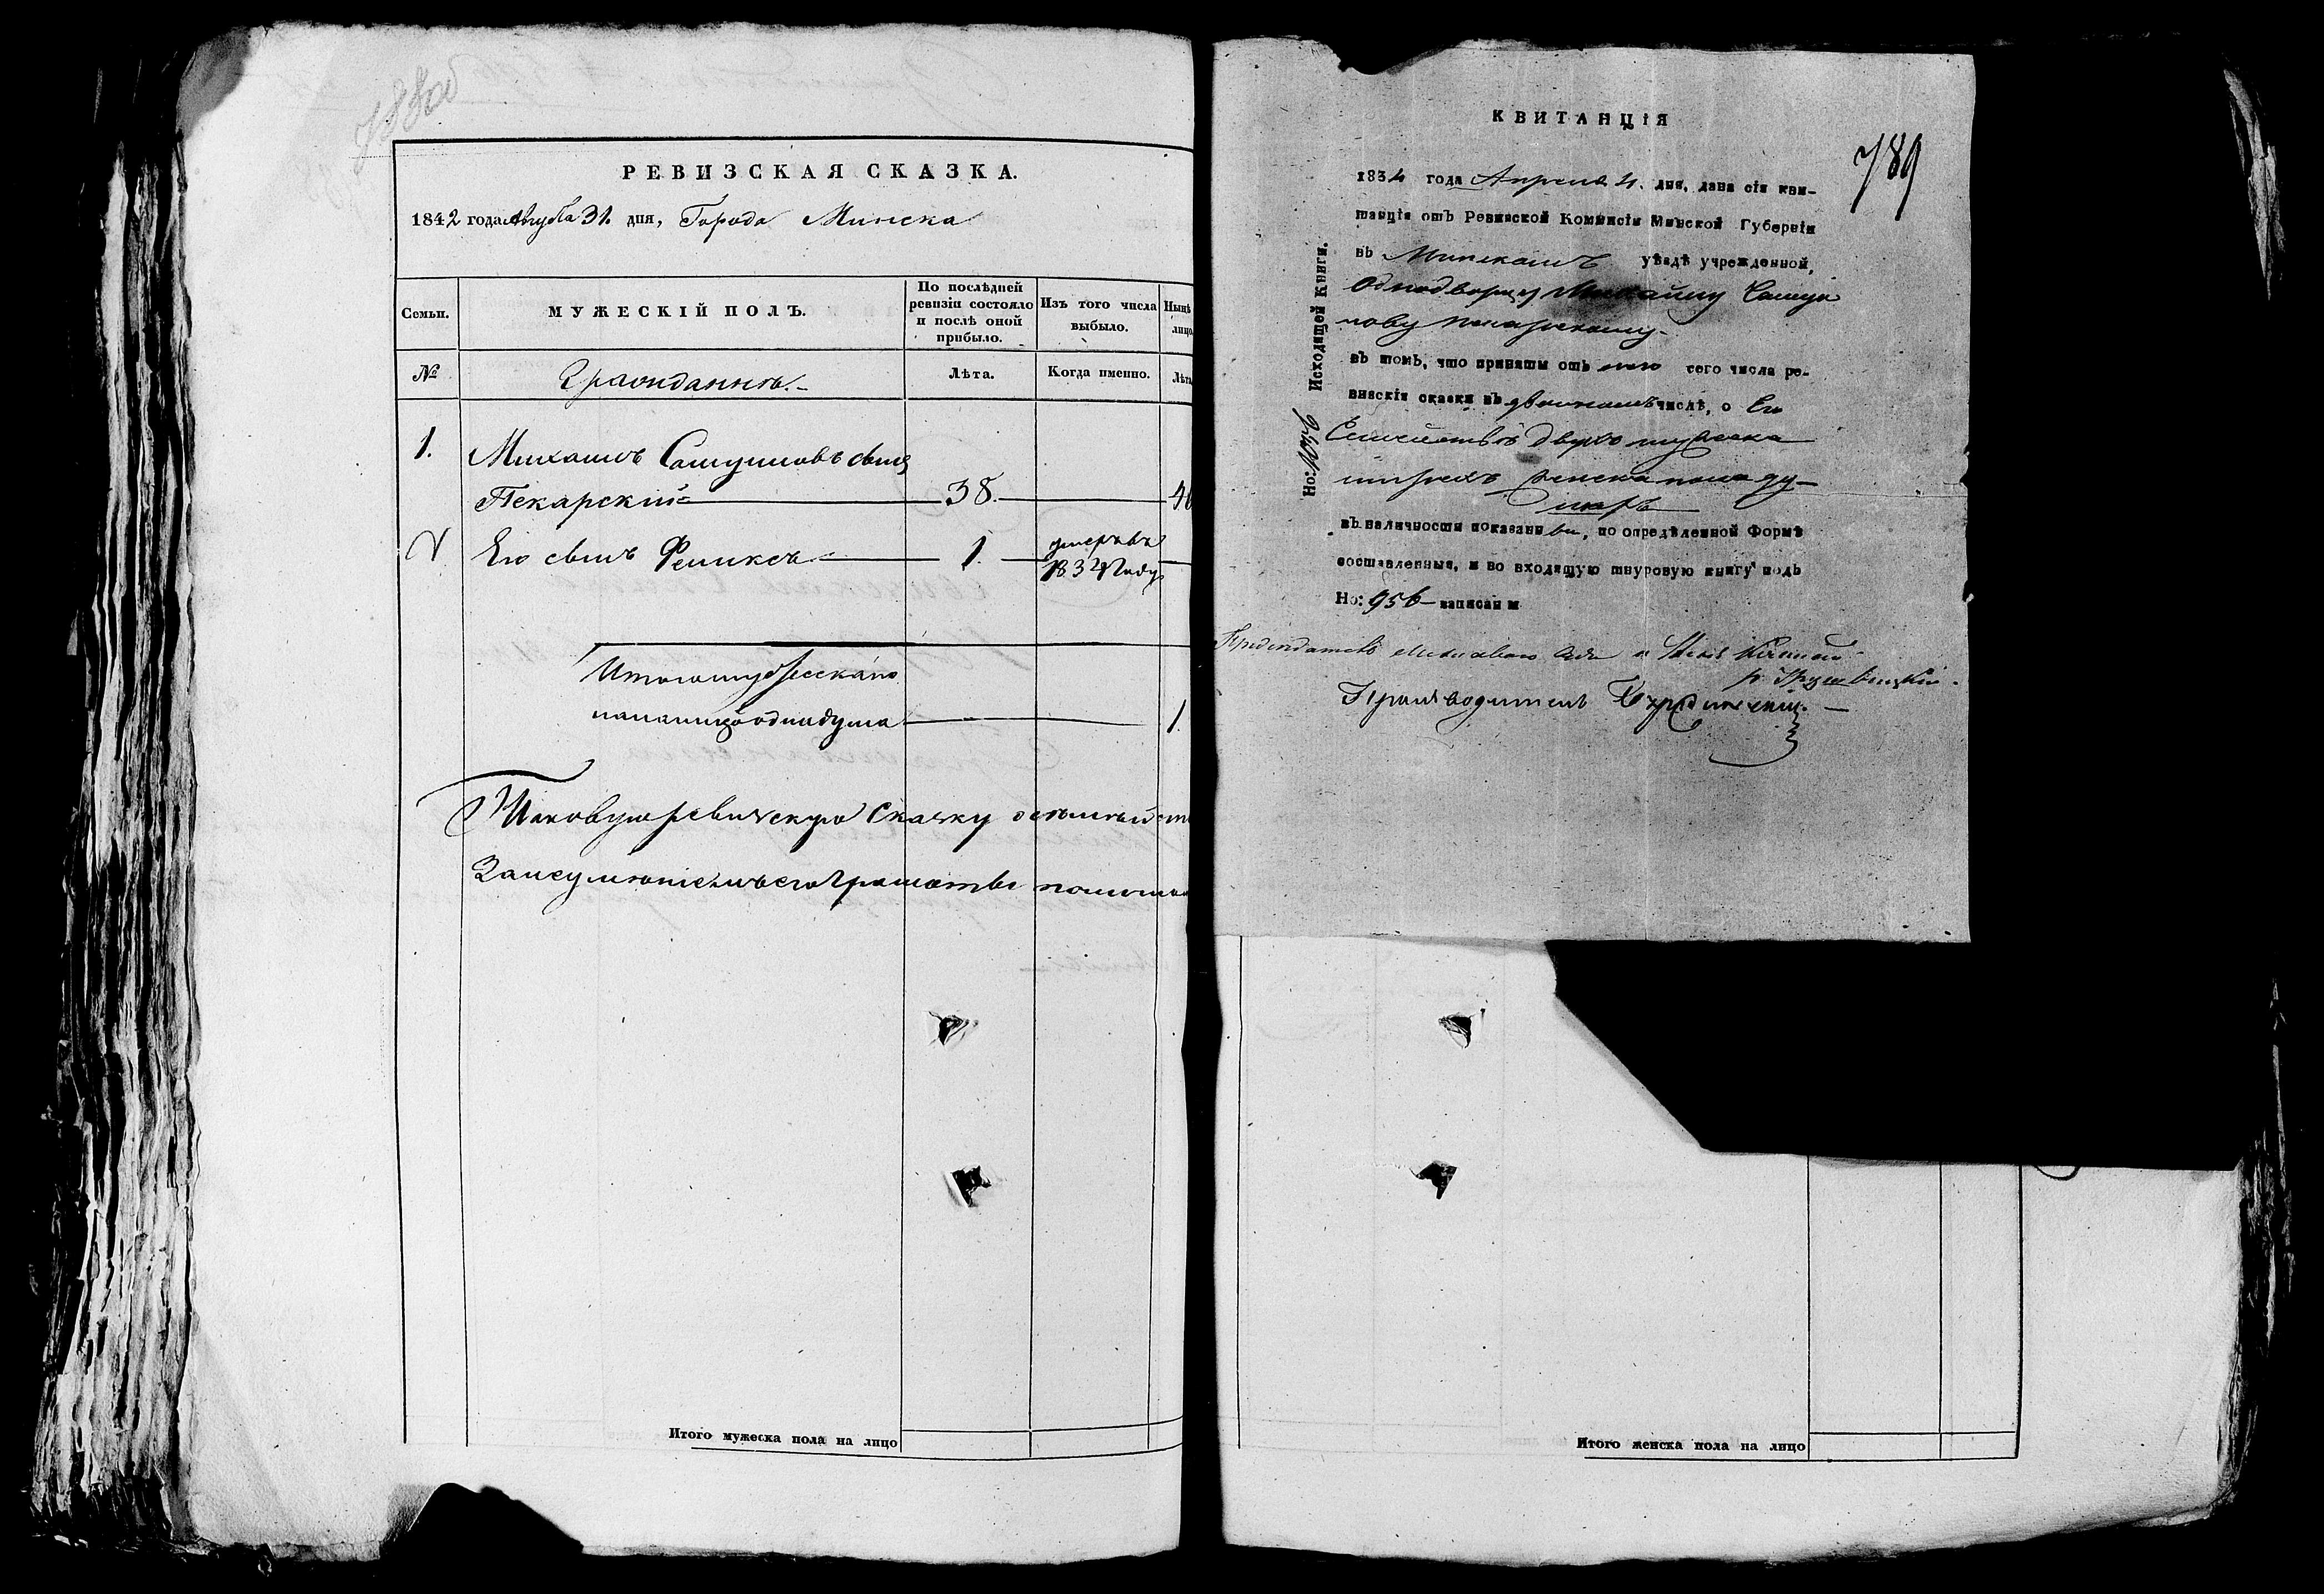 788об
РЕВИЗСКАЯ СКАЗКА.
1842 года Августа 31. дня, Города Минска
Семьи.
МУЖЕСКІЙ ПОЛЪ.
По послѣдней ревизіи состояло и послѣ оной прибыло.
Изъ того числа выбыло.
Нынѣ лицо
№
Гражданинъ.
Лѣта.
Когда именно.
Лѣта
1.
Михаилъ Самуиловъ сынъ
Пекарскій 38. 4
Его сынъ Феликсъ 1. умеръ въ 1834 году
Итого мужеска по
ла на лицо одна душа 1.
Таковую ревизскую Сказку
За неумѣніемъ его Грамоты
Итого мужеска пола на лицо
КВИТАНЦІЯ
789
1834 года Апреля 4. дня, дана сія кви-
танція отъ Ревизской Комисіи Минской Губерніи
въ Минскомъ уѣздѣ учрежденной,
Однодворцу Михайлу Самуи
лову Пекарскому
въ томъ, что приняты отъ него сего числа ре-
визскія сказки въ двойномъ числѣ, о Его
Семействѣ двухъ мужеска
трехъ женска пола ду-
шахъ
въ наличности показанны, по опредѣленной Формѣ
составленныя, и во входящую шнуровую книгу подъ
Но: 956 записаны
Но: Исходящей Книги.
Производитель
Итого женска пола на лицо